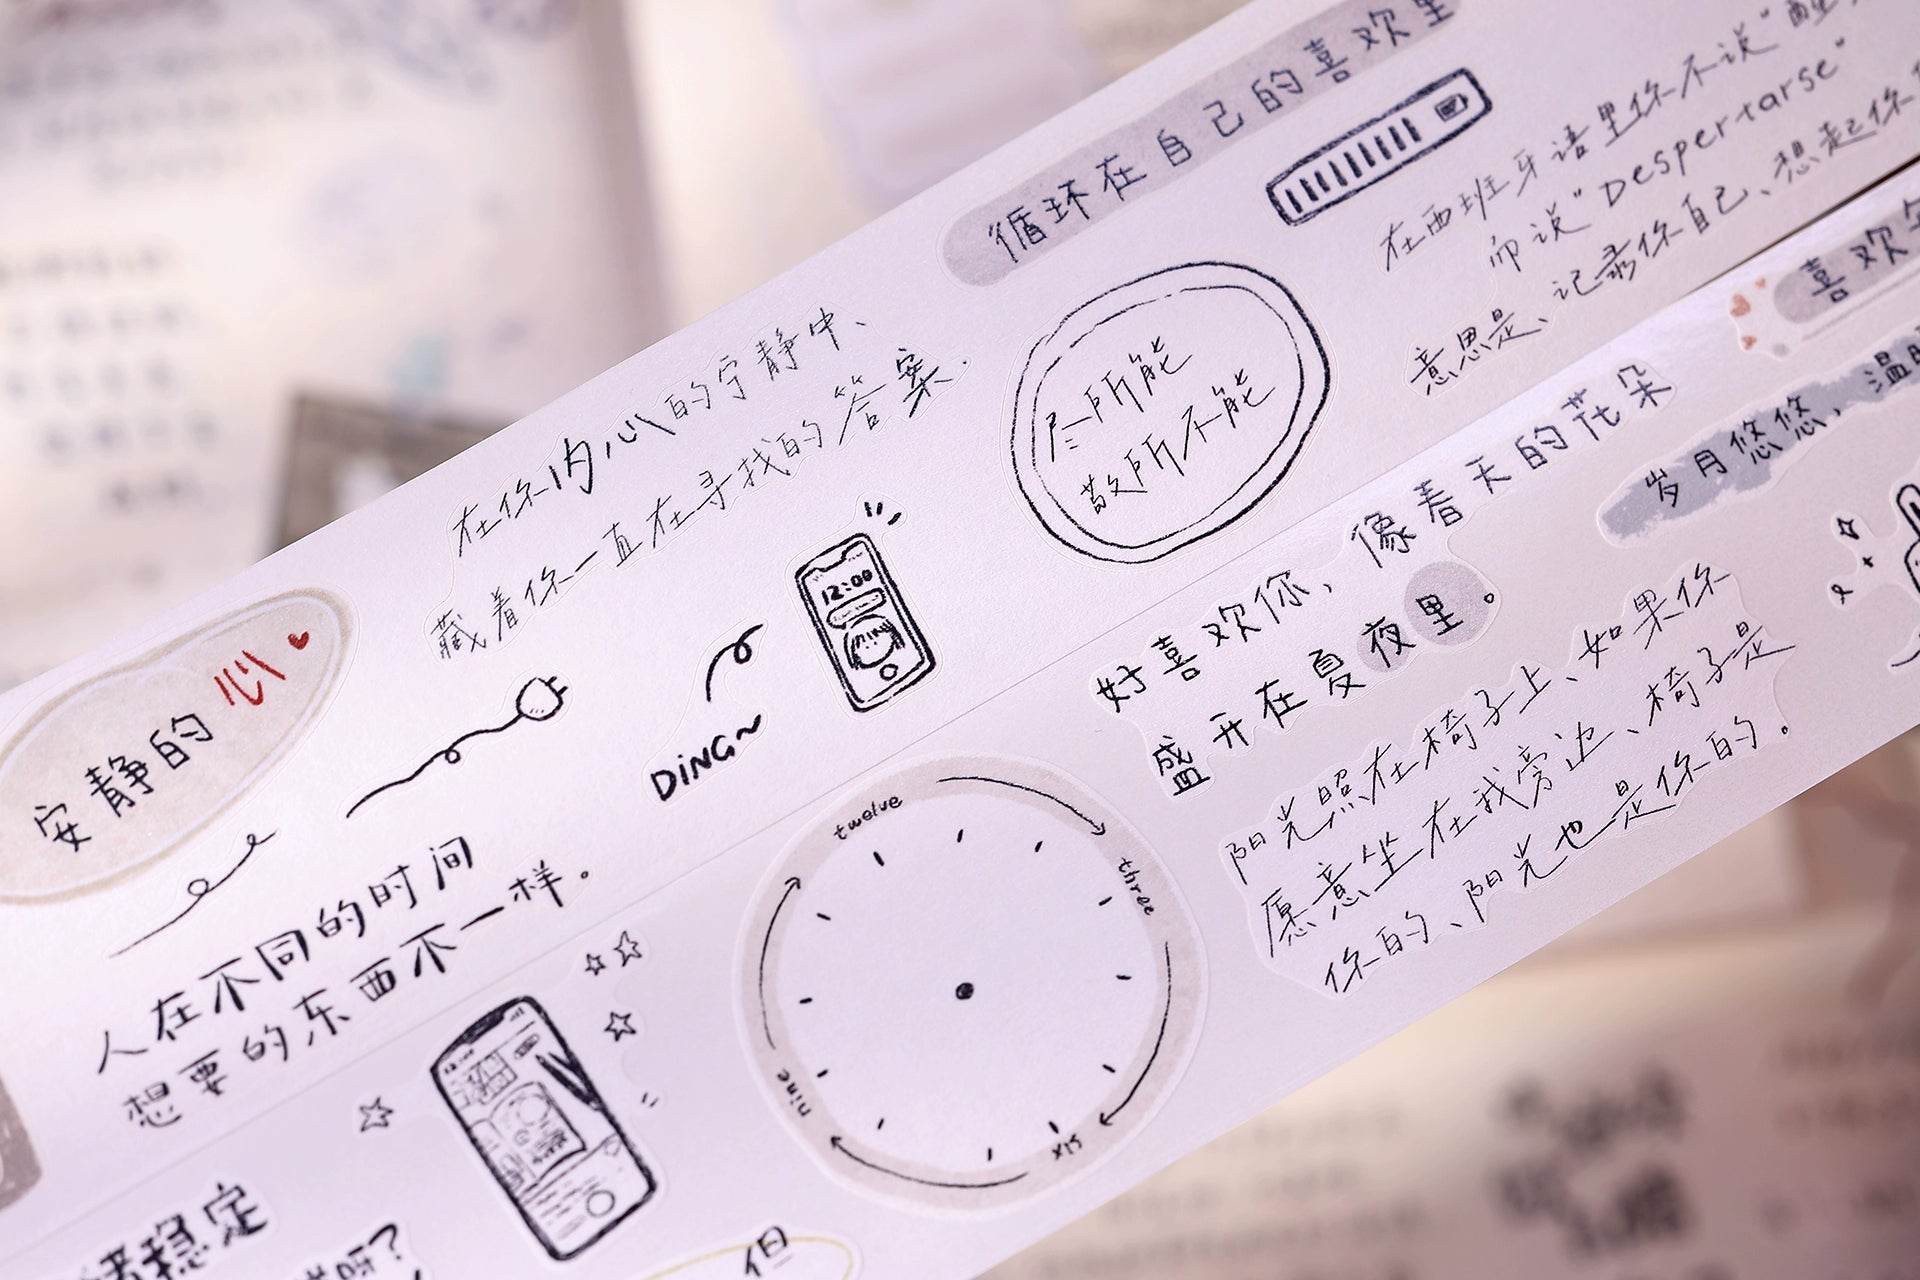 循环在自己的喜欢里
在西班牙语里你不说“醒
而说“Despertarse”
意思是、记录你自己、想起你
在你内心的宁静中、
藏着你一直在寻找的答案.
尽所能
敬所不能
安静的心
12:00
DiNG~
人在不同的时间
想要的东西不一样。
喜欢
好喜欢你,像春天的花朵
盛开在夏夜里。
岁月悠悠,温暖
阳光照在椅子上、如果你
愿意坐在我旁边、椅子是
你的、阳光也是你的.
twelve
three
six
nine
绪稳定
呀?
但